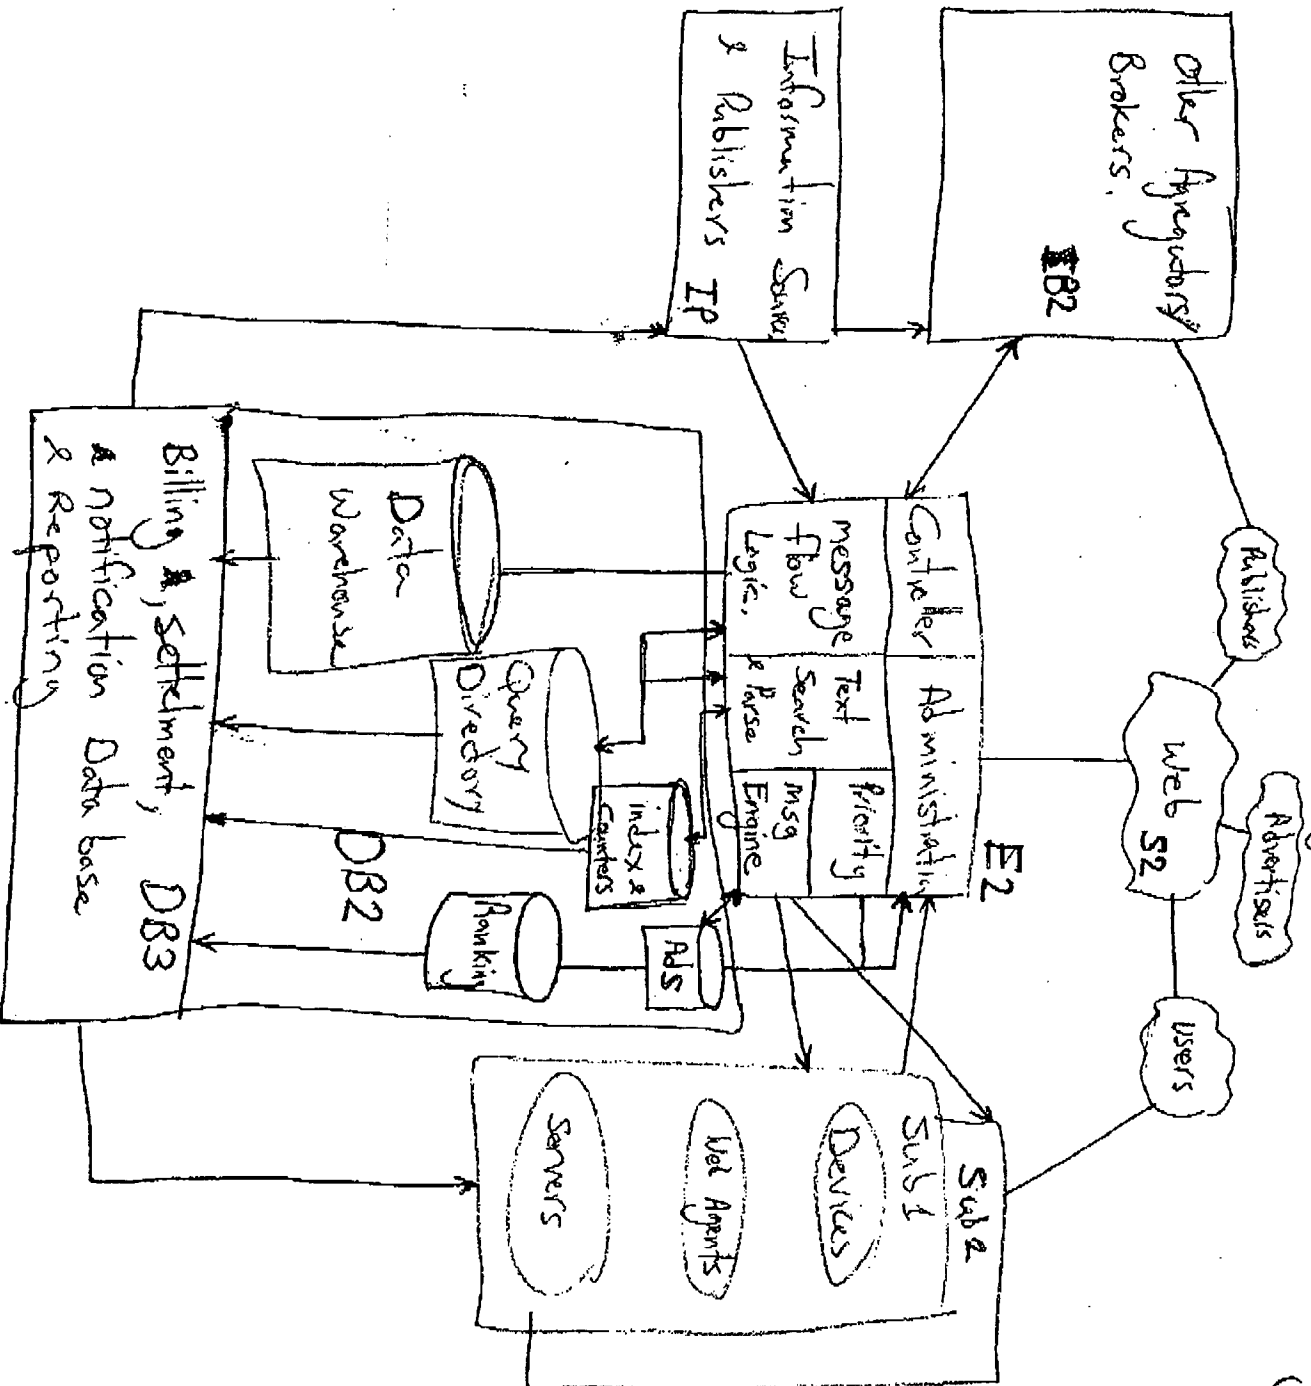 Other Agregators/
Brokers.
IB2
Information Source
& Publishers IP
Publishers
Web
S2
Advertisers
Users
E2
Controller
Administration
message
flow
Logic.
Text
Search
& Parse
Priority
Msg
Engine
Data
Warehouse
Query
Directory
index &
Counters
Ads
Ranking
DB2
Billing , Settelment,
notification Data base
& Reporting
DB3
Sub 2
Sub 1
Devices
Web Agents
Servers